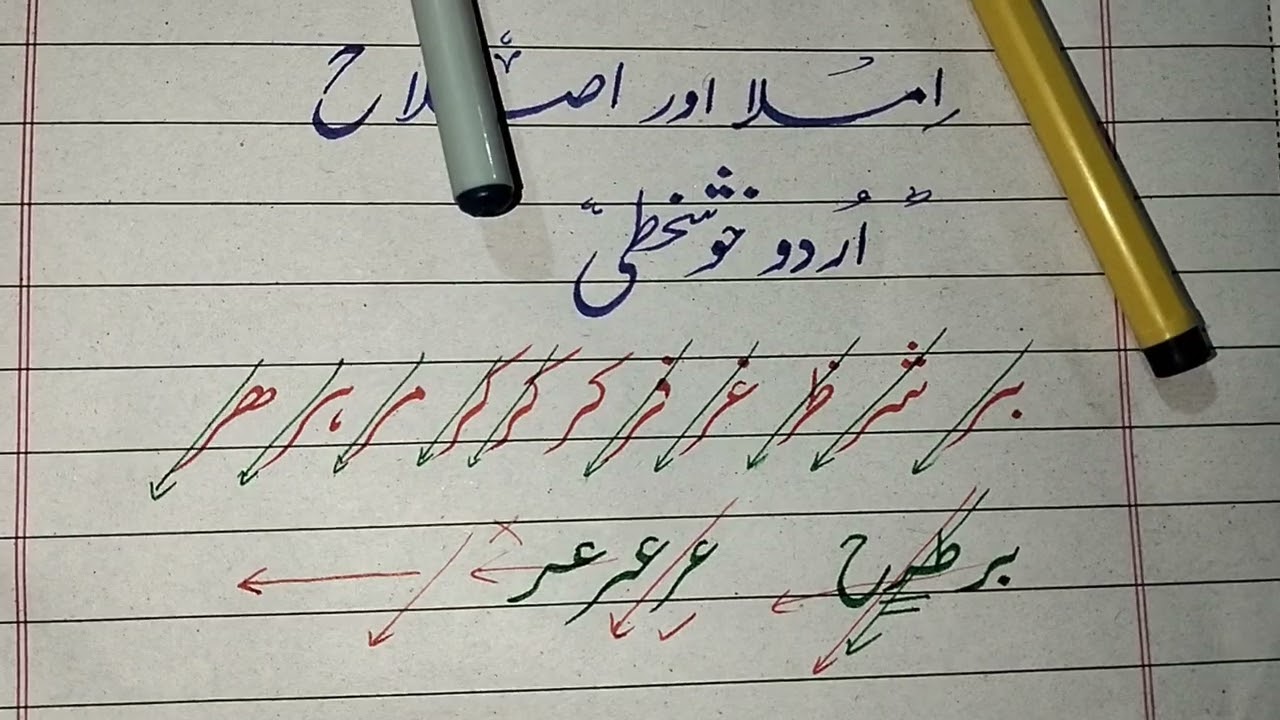 اِمُلا اور اصلاح
اُردو خوشخطی
بر شر ظر غر فر کر گر گر مر ہر ھر
بر طرح عر عر عر